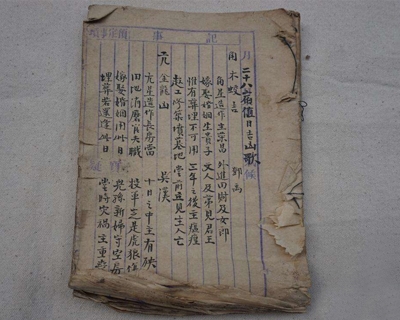 記事
月
候
二十八宿值日吉凶歌
角木蛟吉 鄧禹
角星造作主榮昌 外進田財及女郎
嫁娶婚姻生貴子 文人及第見君王
惟有葬埋不可用 三年之後主瘟疫
起工修築墳墓地 堂前立見主人亡
亢金龍凶 吳漢
亢星造作長房當 十日之中主有殃
田地消磨官失職 投軍定是虎狼傷
嫁娶婚姻用此日 兒孫新婦守空房
埋葬若還逢此日 當時災禍主重喪